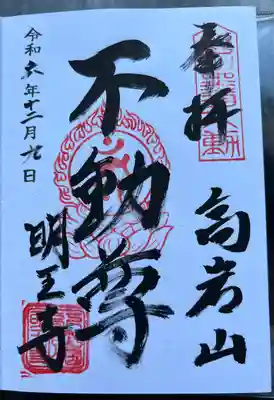 奉拝
高岩山
不動尊
明王寺
令和六年十二月九日